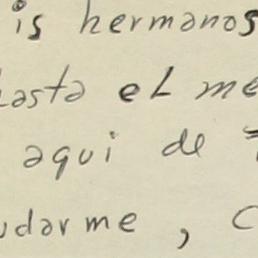 is hermanos
hasta el me
aqui de
udarme, c